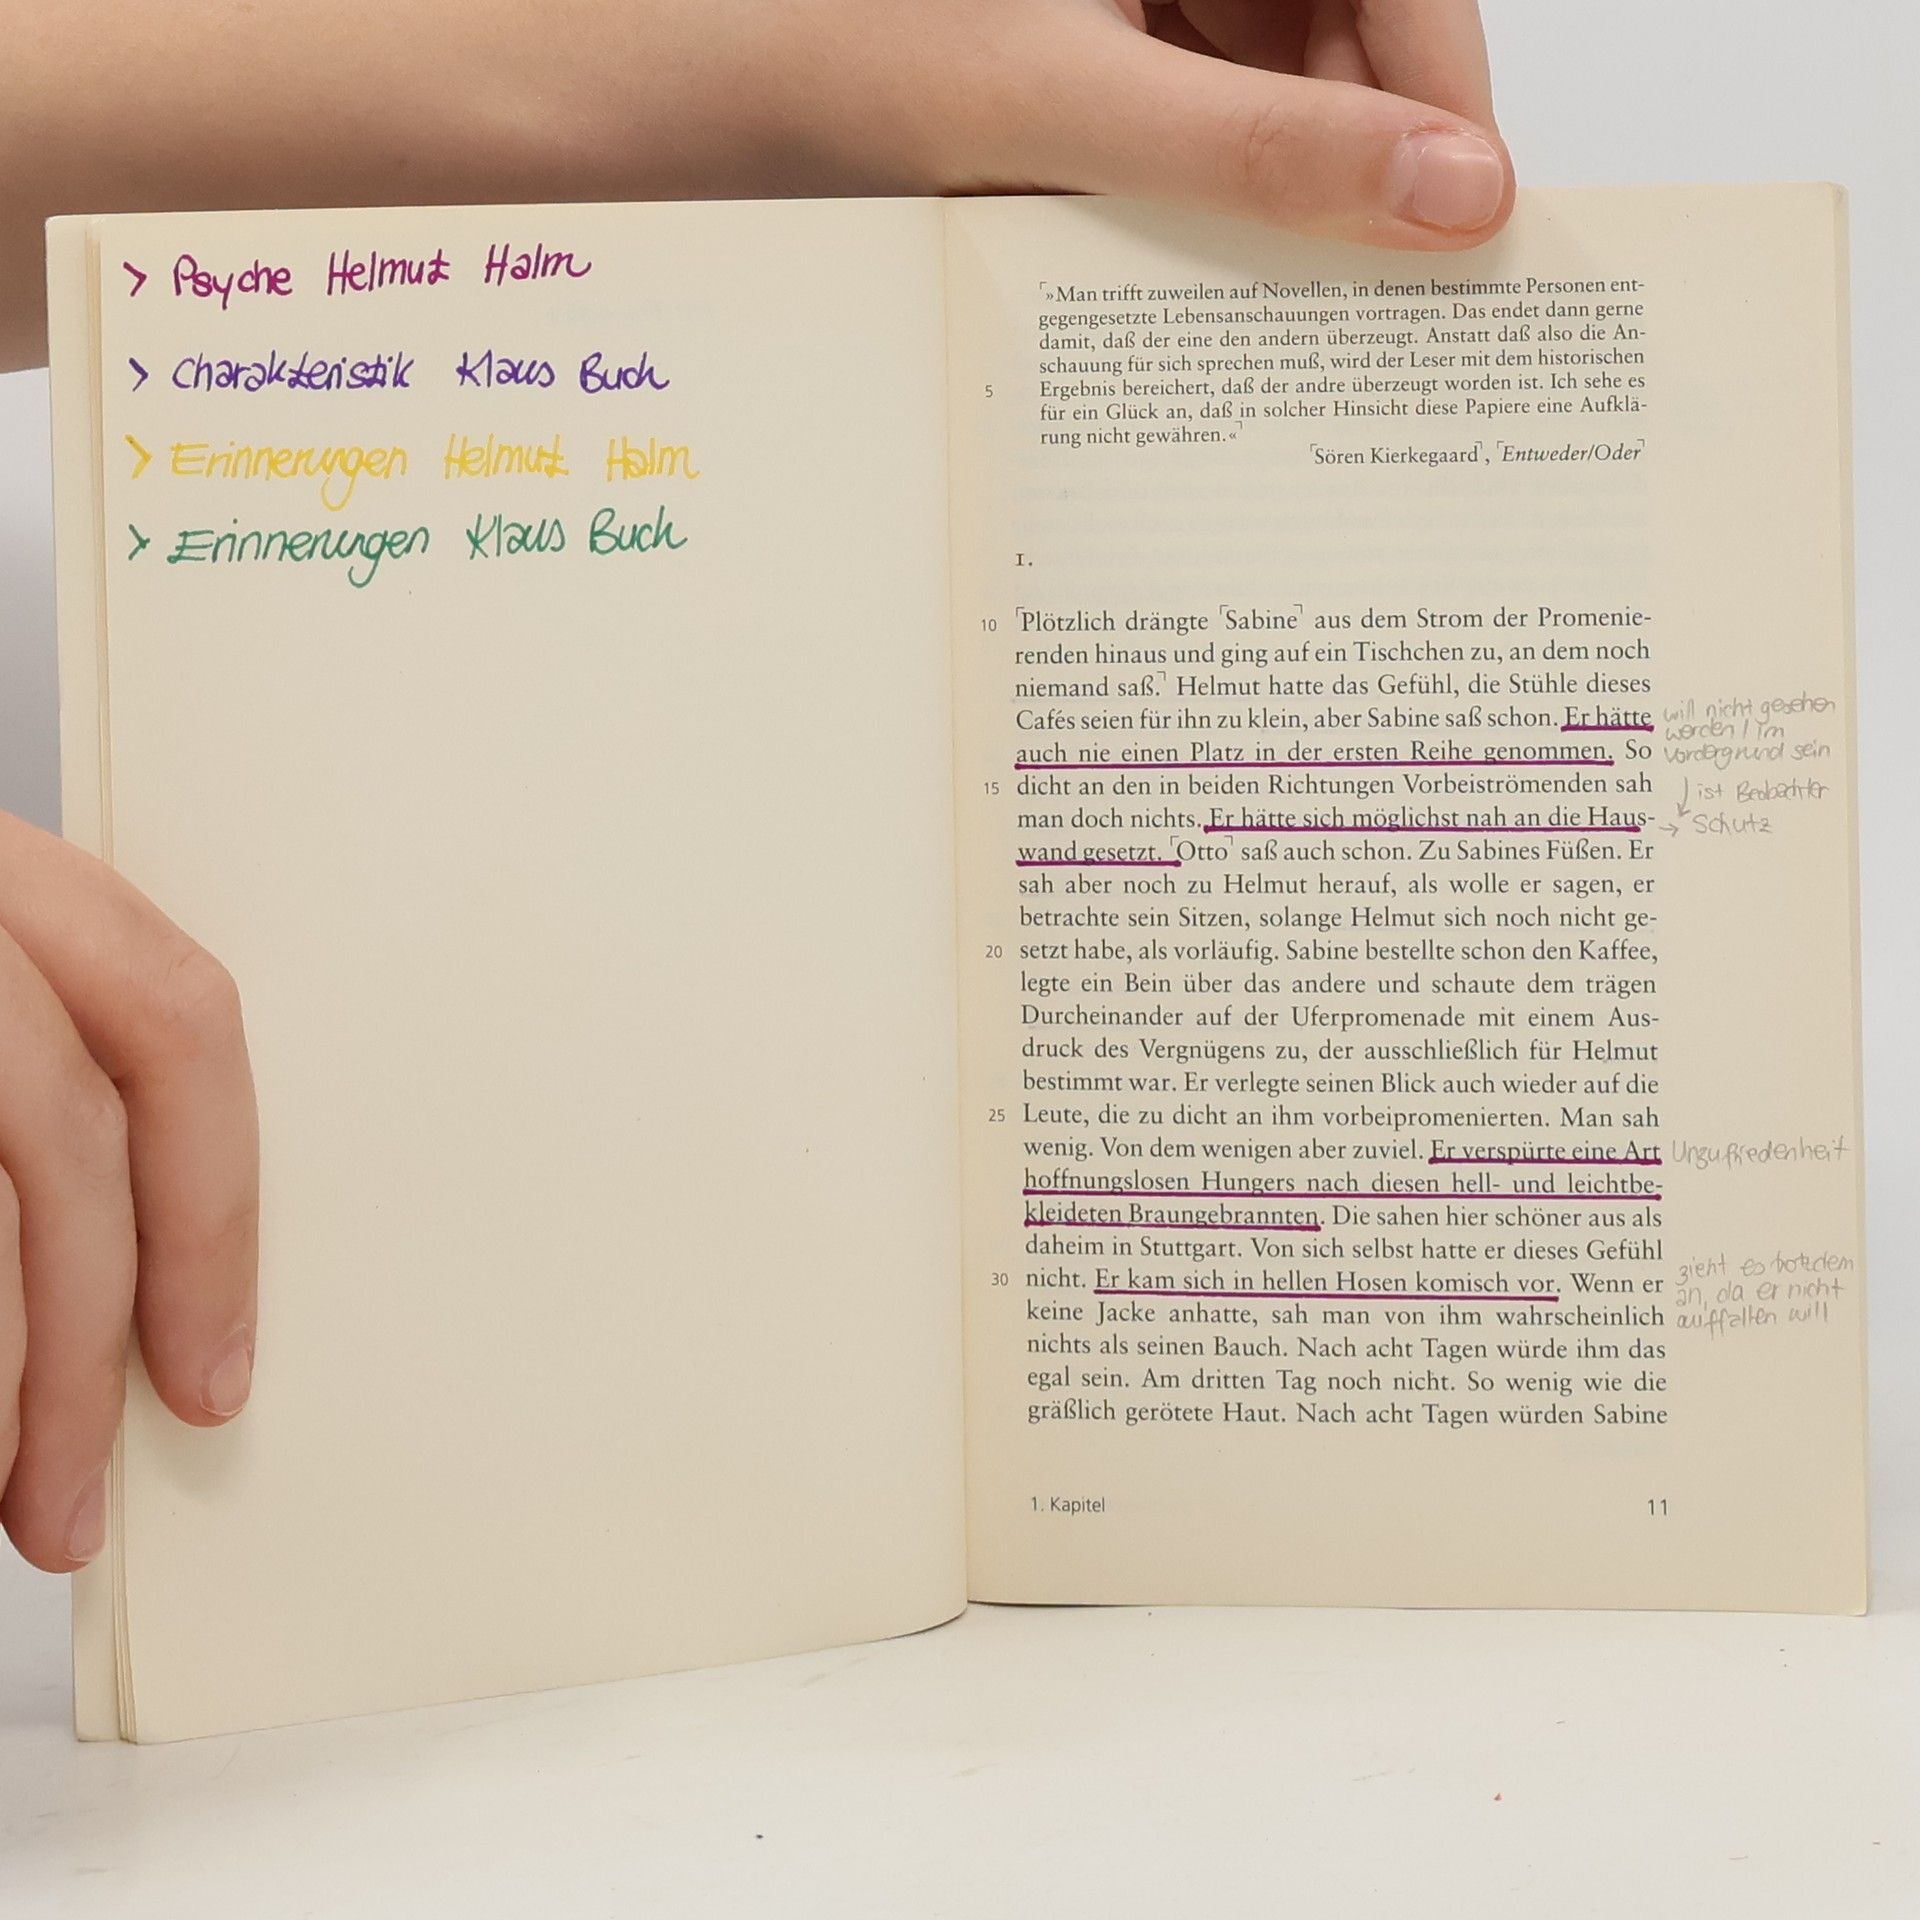 > Psyche Helmut Halm
> Charakteristik Klaus Buch
> Erinnerungen Helmut Halm
> Erinnerungen Klaus Buch
⌜»Man trifft zuweilen auf Novellen, in denen bestimmte Personen ent-
gegengesetzte Lebensanschauungen vortragen. Das endet dann gerne
damit, daß der eine den andern überzeugt. Anstatt daß also die An-
schauung für sich sprechen muß, wird der Leser mit dem historischen
5 Ergebnis bereichert, daß der andre überzeugt worden ist. Ich sehe es
für ein Glück an, daß in solcher Hinsicht diese Papiere eine Aufklä-
rung nicht gewähren.«⌝
⌜Sören Kierkegaard⌝, ⌜Entweder/Oder⌝
1.
10 ⌜Plötzlich drängte ⌜Sabine⌝ aus dem Strom der Promenie-
renden hinaus und ging auf ein Tischchen zu, an dem noch
niemand saß.⌝ Helmut hatte das Gefühl, die Stühle dieses
Cafés seien für ihn zu klein, aber Sabine saß schon. Er hätte
auch nie einen Platz in der ersten Reihe genommen. So
15 dicht an den in beiden Richtungen Vorbeiströmenden sah
man doch nichts. Er hätte sich möglichst nah an die Haus-
wand gesetzt. ⌜Otto⌝ saß auch schon. Zu Sabines Füßen. Er
sah aber noch zu Helmut herauf, als wolle er sagen, er
betrachte sein Sitzen, solange Helmut sich noch nicht ge-
20 setzt habe, als vorläufig. Sabine bestellte schon den Kaffee,
legte ein Bein über das andere und schaute dem trägen
Durcheinander auf der Uferpromenade mit einem Aus-
druck des Vergnügens zu, der ausschließlich für Helmut
bestimmt war. Er verlegte seinen Blick auch wieder auf die
25 Leute, die zu dicht an ihm vorbeipromenierten. Man sah
wenig. Von dem wenigen aber zuviel. Er verspürte eine Art
hoffnungslosen Hungers nach diesen hell- und leichtbe-
kleideten Braungebrannten. Die sahen hier schöner aus als
daheim in Stuttgart. Von sich selbst hatte er dieses Gefühl
30 nicht. Er kam sich in hellen Hosen komisch vor. Wenn er
keine Jacke anhatte, sah man von ihm wahrscheinlich
nichts als seinen Bauch. Nach acht Tagen würde ihm das
egal sein. Am dritten Tag noch nicht. So wenig wie die
gräßlich gerötete Haut. Nach acht Tagen würden Sabine
will nicht gesehen
werden / im
Vordergrund sein
↓ ist Beobachter
→ Schutz
Unzufriedenheit
zieht es trotzdem
an, da er nicht
auffallen will
1. Kapitel 11